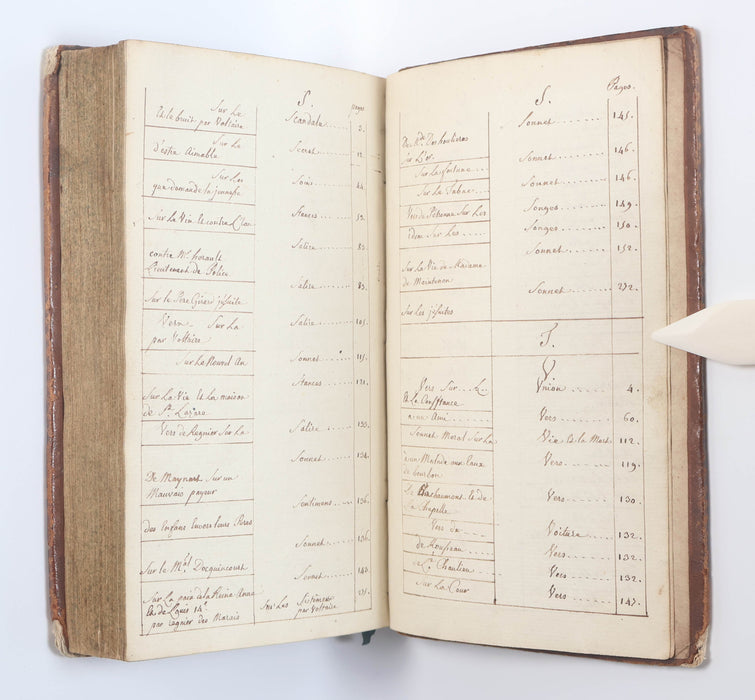 S. pages
Sur Le Scandale ...... 3.
Et le bruit par Voltaire
Sur La Secret ...... 12.
d'estre Aimable
Sur Les Soins ...... 44.
que demande la jeunesse
Stances ...... 59.
Sur La Vie Et contre
Satire ...... 83.
contre Mr. herault
Lieutenant de Police
Satire ...... 83.
Sur le Père Girard jesuite
Vers Sur La Satire ...... 105.
par Voltaire
Sonnet ...... 115.
Sur Le Nouvel An
Stances ...... 121.
Sur La Vie Et La maison
de St. Lazare
Vers de Regnier Sur La Satire ...... 133.
Sonnet ...... 134.
De Maynart Sur un
Mauvais payeur
Sentimens ...... 136.
des Enfans Envers leurs Peres
Sonnet ...... 136.
Sur Le Mal. Docquincourt
Sonnet ...... 143.
Sur La paix de la Reine Anne
Et de Louis 14e.
par regnier des Marais
Sur Les Sistèmes 251.
par Voltaire
S. Pages.
Sonnet ...... 145.
De Me. Deshoulieres
Sur L'or
Sonnet ...... 146.
Sur La fortune
Sonnet ...... 146.
Sur La Tabac
Songes ...... 149.
Vers de Sur Les
Songes ...... 150.
idem Sur Les
Sonnet ...... 152.
Sur La Vie de Madame
de Maintenon
Sonnet ...... 272.
Sur Les jesuites
T.
V
Vers Sur L Vnion ...... 4.
et La Constance
Vers ...... 60.
a un Ami
Sonnet Moral Sur La Vie Et La Mort. 112.
Vers ...... 119.
à un Malade aux Eaux
de bourbon
Vers ...... 130.
De Bachaumont et de
La Chapelle
Vers de Voiture ...... 132.
Vers ...... 132.
de Rousseau
Vers ...... 132.
de Chaulieu
Vers ...... 147.
Sur La Cour